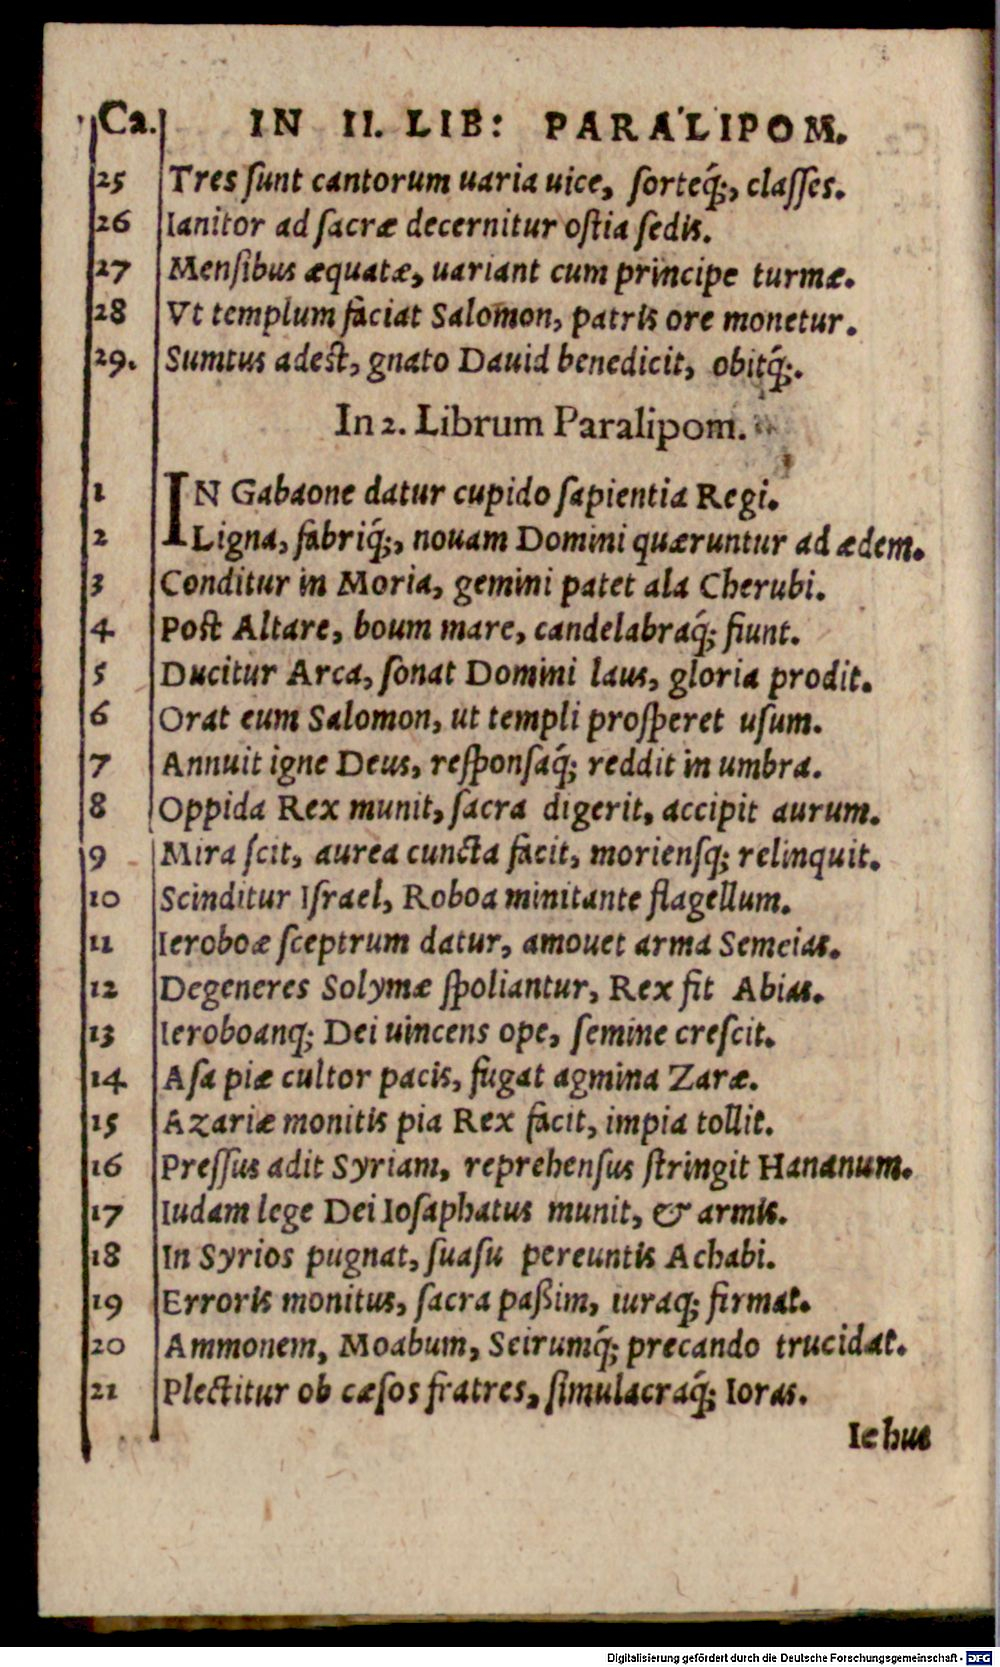 Ca. IN II. LIB: PARALIPOM.
25 Tres ſunt cantorum uaria uice, ſorteq́;, claſſes.
26 Ianitor ad ſacræ decernitur oſtia ſedis.
27 Menſibus æquatæ, uariant cum principe turmæ.
28 Vt templum faciat Salomon, patris ore monetur.
29. Sumtus adeſt, gnato Dauid benedicit, obitq́;.
In 2. Librum Paralipom.
1 IN Gabaone datur cupido ſapientia Regi.
2 Ligna, fabriq́;, nouam Domini quæruntur ad ædem.
3 Conditur in Moria, gemini patet ala Cherubi.
4 Poſt Altare, boum mare, candelabraq́; fiunt.
5 Ducitur Arca, ſonat Domini laus, gloria prodit.
6 Orat eum Salomon, ut templi proſperet uſum.
7 Annuit igne Deus, reſponſaq́; reddit in umbra.
8 Oppida Rex munit, ſacra digerit, accipit aurum.
9 Mira ſcit, aurea cuncta facit, moriensq; relinquit.
10 Scinditur Iſrael, Roboa minitante flagellum.
11 Ieroboæ ſceptrum datur, amouet arma Semeias.
12 Degeneres Solymæ ſpoliantur, Rex fit Abias.
13 Ieroboanq; Dei uincens ope, ſemine creſcit.
14 Aſa piæ cultor pacis, fugat agmina Zaræ.
15 Azariæ monitis pia Rex facit, impia tollit.
16 Preſſus adit Syriam, reprehenſus ſtringit Hananum.
17 Iudam lege Dei Ioſaphatus munit, & armis.
18 In Syrios pugnat, ſuaſu pereuntis Achabi.
19 Erroris monitus, ſacra paßim, iuraq; firmat.
20 Ammonem, Moabum, Seirumq́; precando trucidat.
21 Plectitur ob cæſos fratres, ſimulacraq́; Ioras.
Iehus
Digitalisierung gefördert durch die Deutsche Forschungsgemeinschaft - DFG